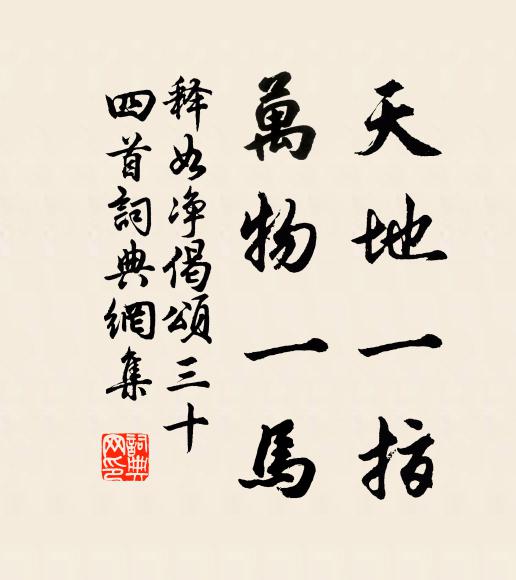 天地一指
萬物一馬
释如净偈頌三十
四首詞典網集
詞典網印